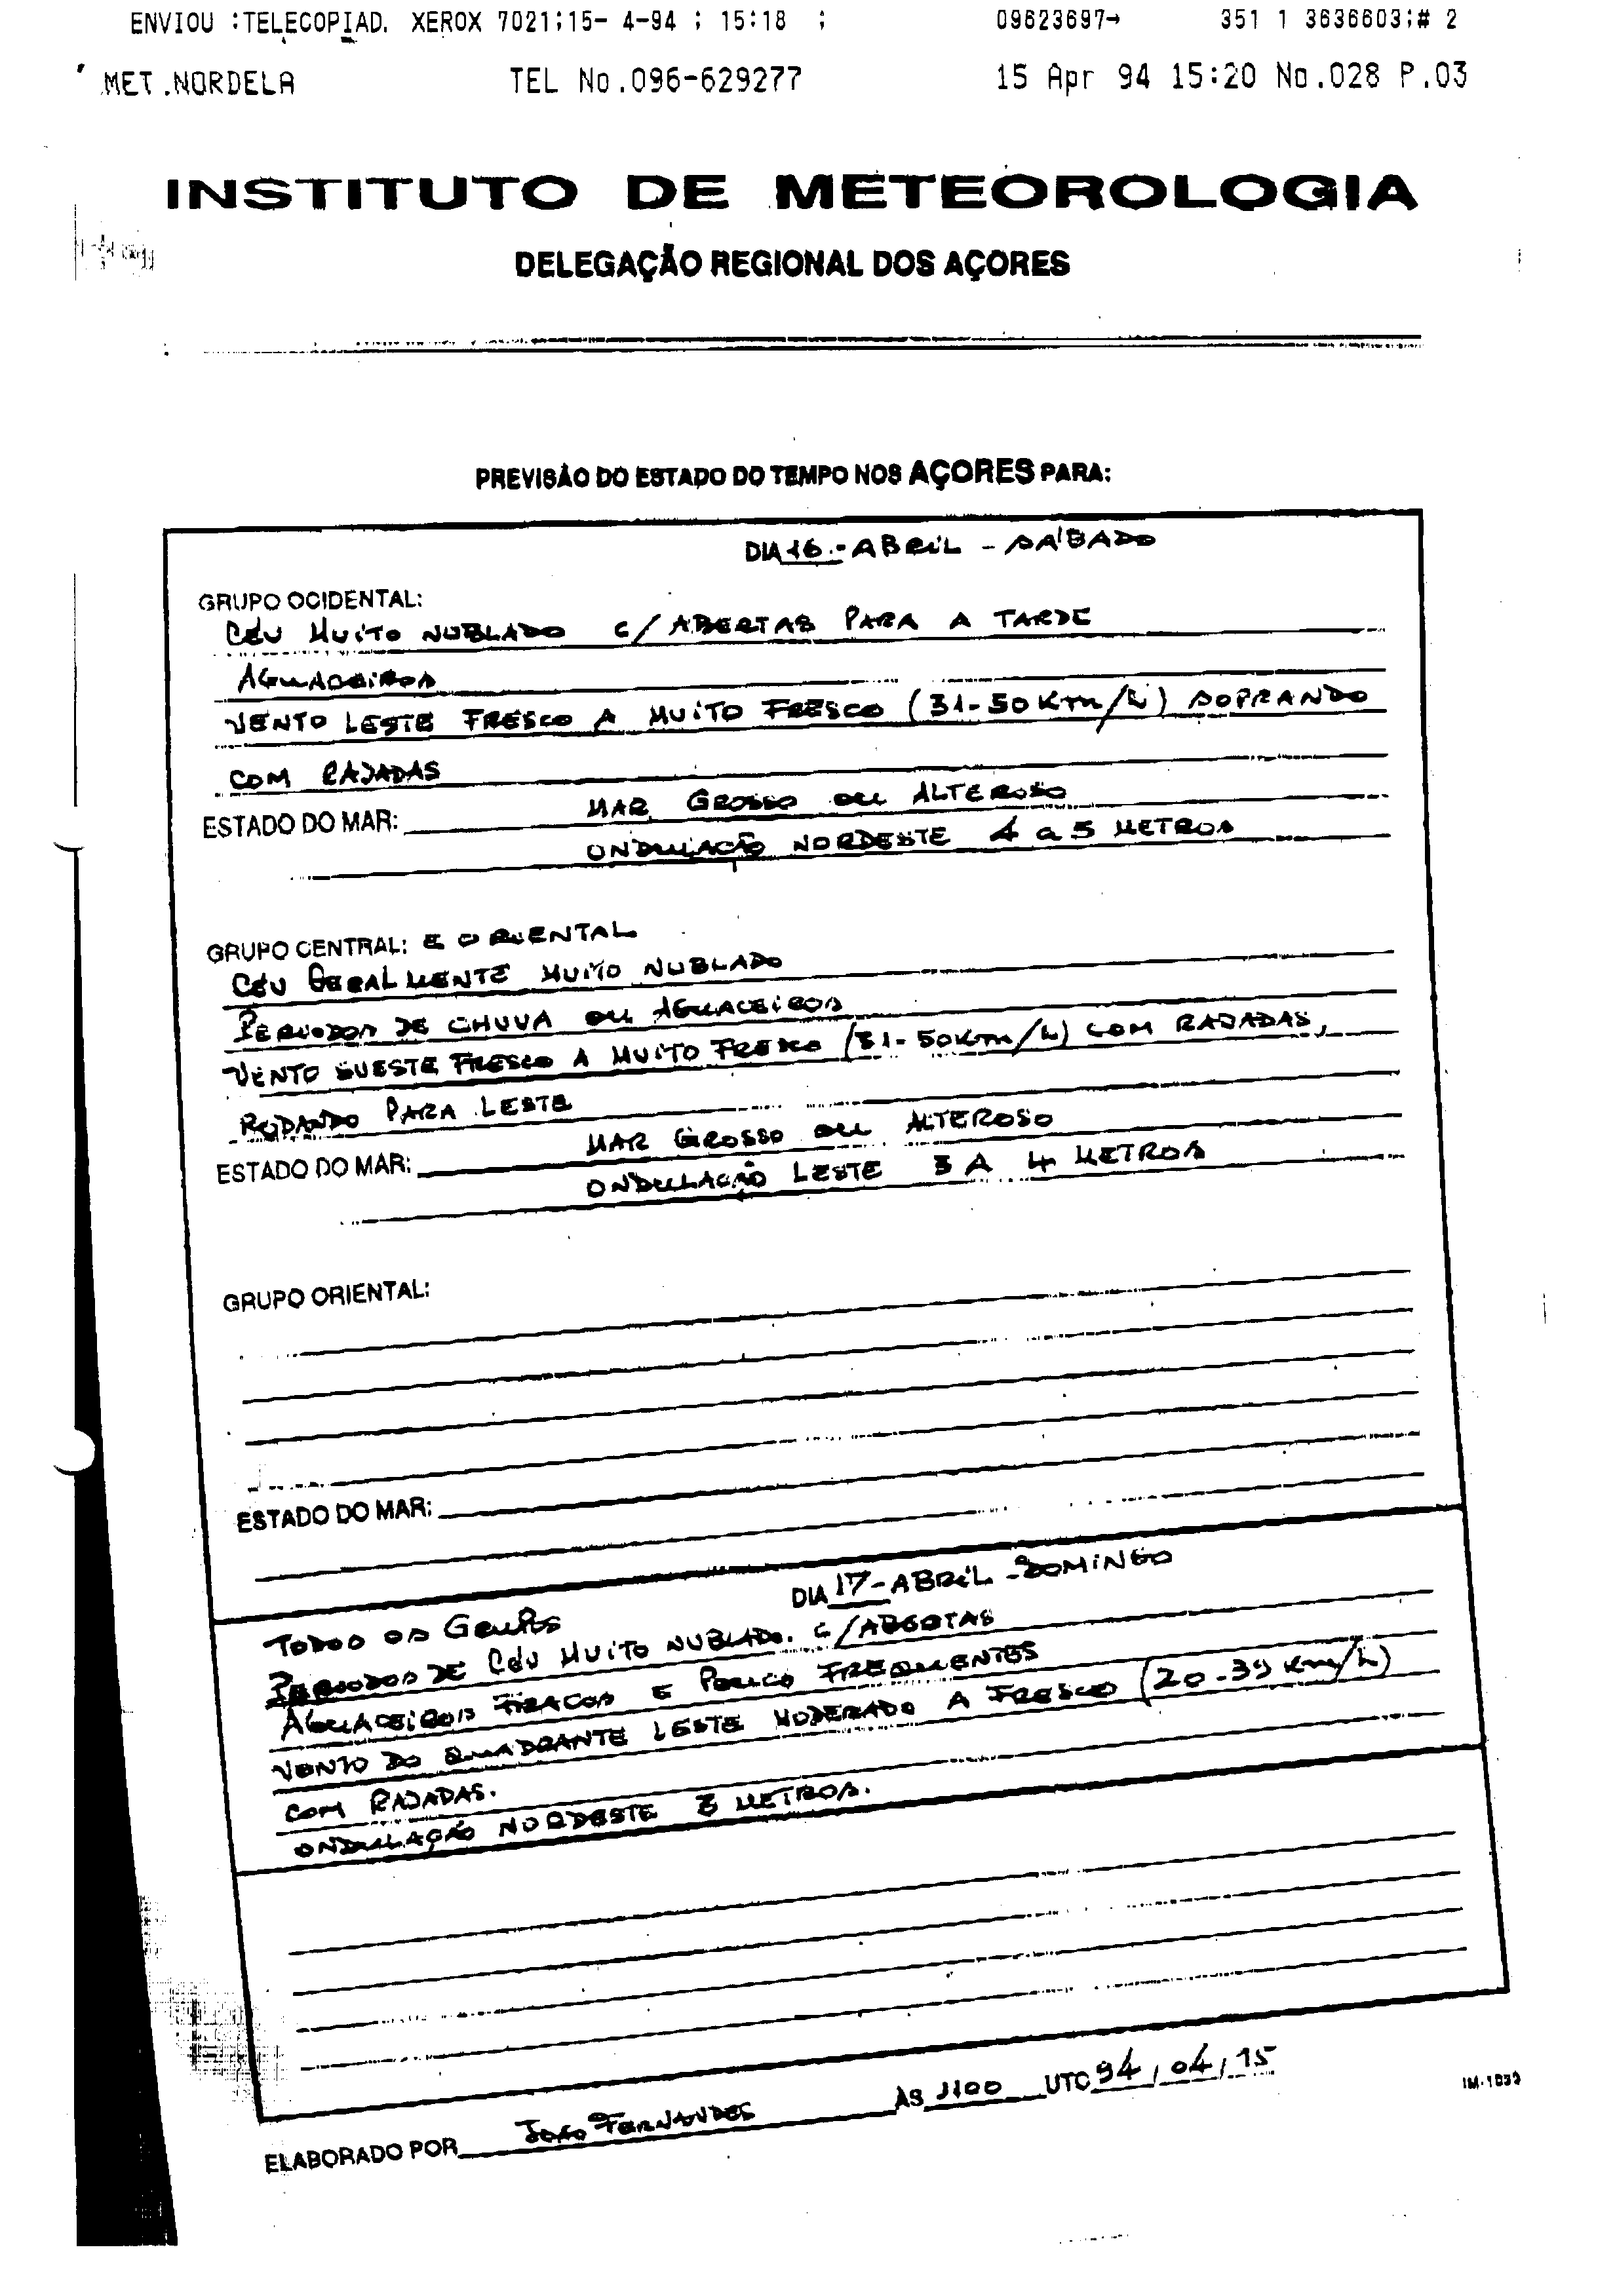 ENVIOU :TELECOPIAD. XEROX 7021;15- 4-94 ; 15:18 ; 09623697→ 351 1 3636603;# 2
MET.NORDELA TEL No.096-629277 15 Apr 94 15:20 No.028 P.03
INSTITUTO DE METEOROLOGIA
DELEGAÇÃO REGIONAL DOS AÇORES
PREVISÃO DO ESTADO DO TEMPO NOS AÇORES PARA:
DIA 16 - ABRIL - SÁBADO
GRUPO OCIDENTAL:
CÉU MUITO NUBLADO C/ ABERTAS PARA A TARDE
AGUACEIROS
VENTO LESTE FRESCO A MUITO FRESCO (31-50 Km/h) SOPRANDO
COM RAJADAS
ESTADO DO MAR: MAR GROSSO OU ALTEROSO
ONDULAÇÃO NORDESTE 4 a 5 METROS
GRUPO CENTRAL: E ORIENTAL
CÉU GERALMENTE MUITO NUBLADO
PERIODOS DE CHUVA OU AGUACEIROS
VENTO SUESTE FRESCO A MUITO FRESCO (31-50Km/h) COM RAJADAS,
RODANDO PARA LESTE
ESTADO DO MAR: MAR GROSSO OU ALTEROSO
ONDULAÇÃO LESTE 3 A 4 METROS
GRUPO ORIENTAL:
ESTADO DO MAR:
DIA 17 - ABRIL - DOMINGO
TODOS OS GRUPOS
PERIODOS DE CÉU MUITO NUBLADO. C/ABERTAS
AGUACEIROS FRACOS E POUCO FREQUENTES
VENTO DO QUADRANTE LESTE MODERADO A FRESCO (20-39 Km/h)
COM RAJADAS.
ONDULAÇÃO NORDESTE 3 METROS.
ELABORADO POR JOÃO FERNANDES ÀS 1100 UTC 94/04/15
IM-1032